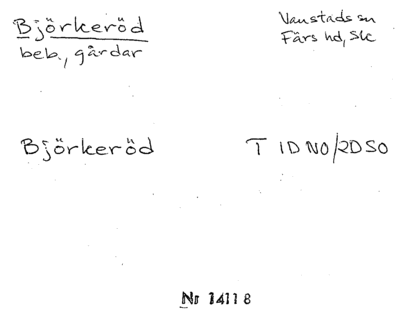 Björkeröd
Vanstads sn
beb., gårdar
Färs hd, Sk
Björkeröd
T 1D NO/2D SO
Nr 14118